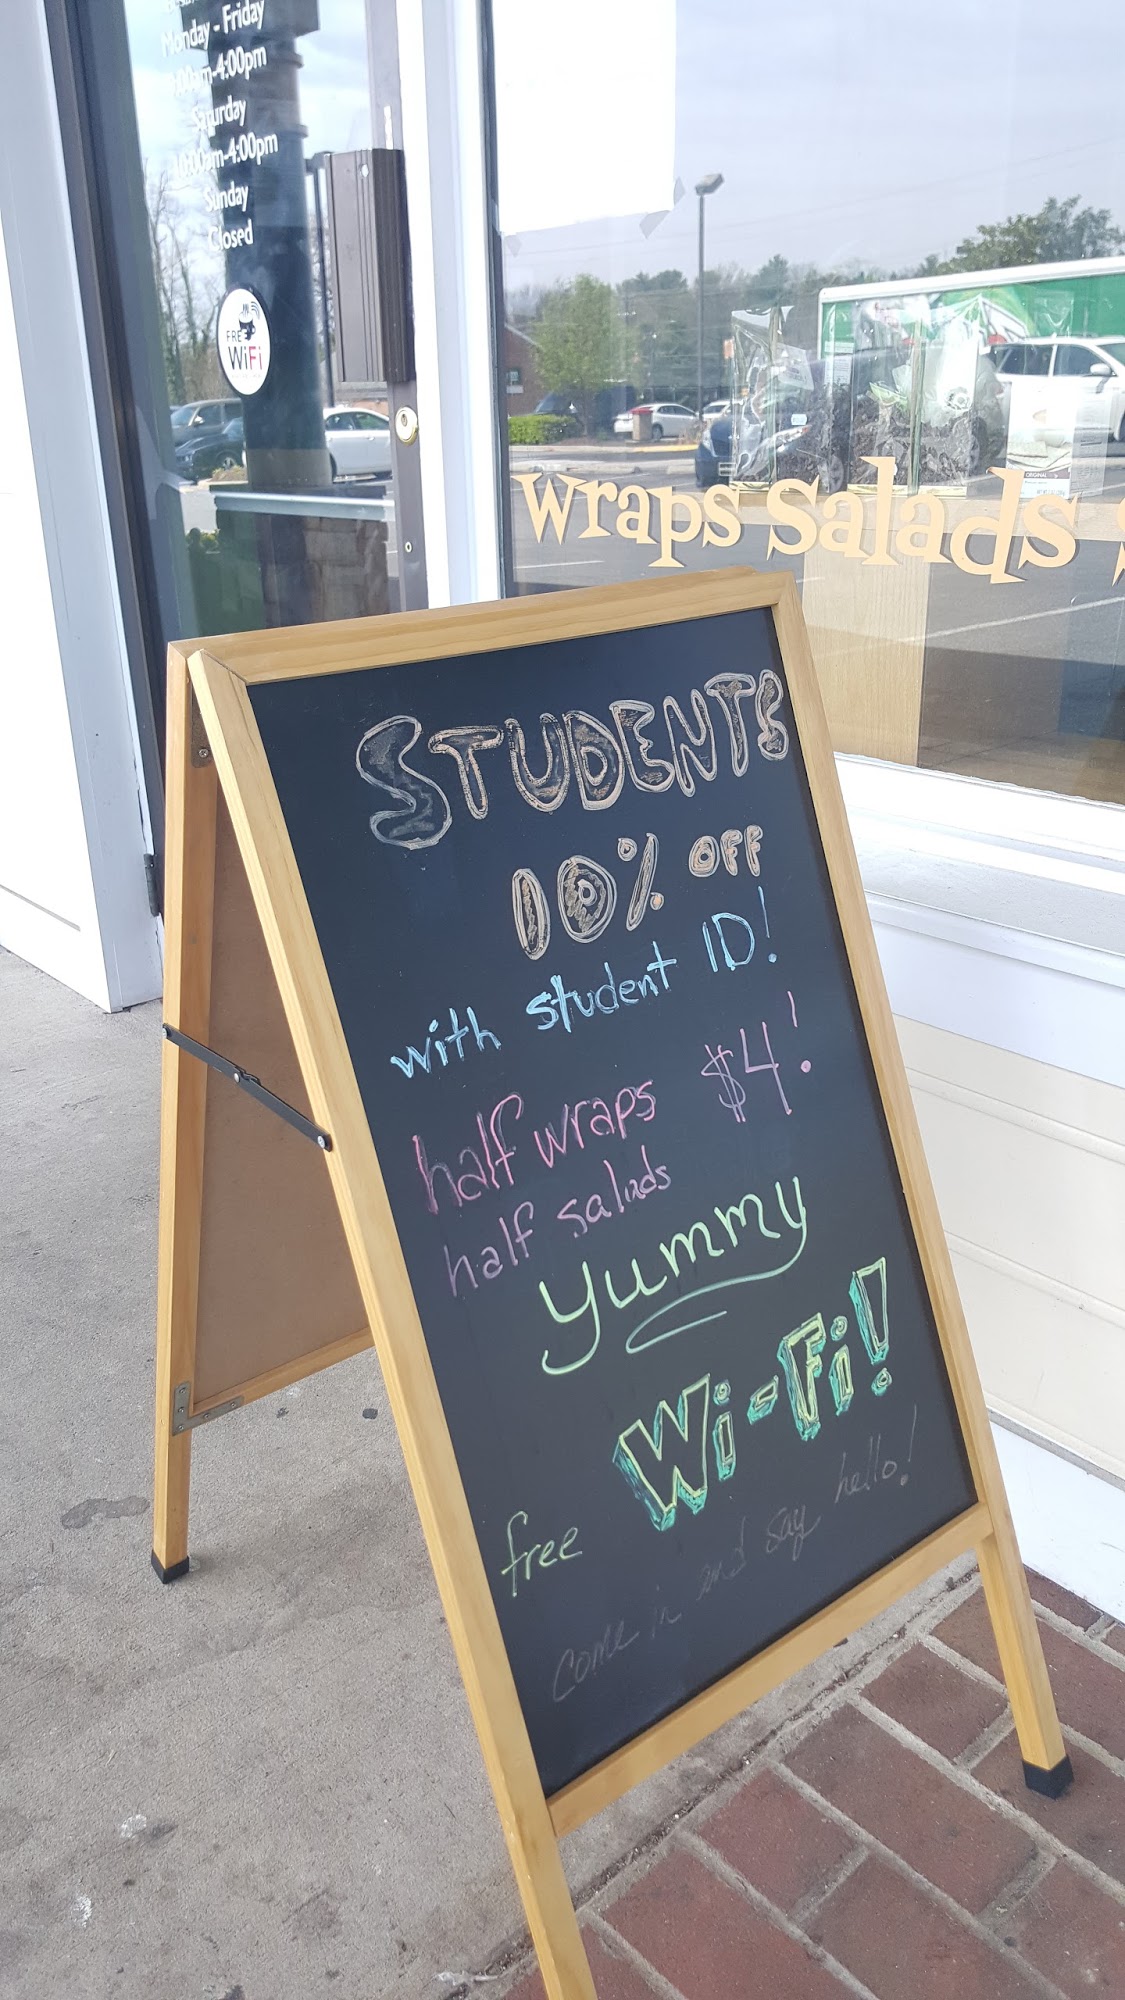 Monday - Friday
Saturday
10:00am-4:00pm
Sunday
Closed
FREE
WiFi
wraps salads
STUDENTS
10% OFF
with student ID!
half wraps $4!
half salads
yummy
free Wi-Fi!
Come in and say hello!
ORIGINAL